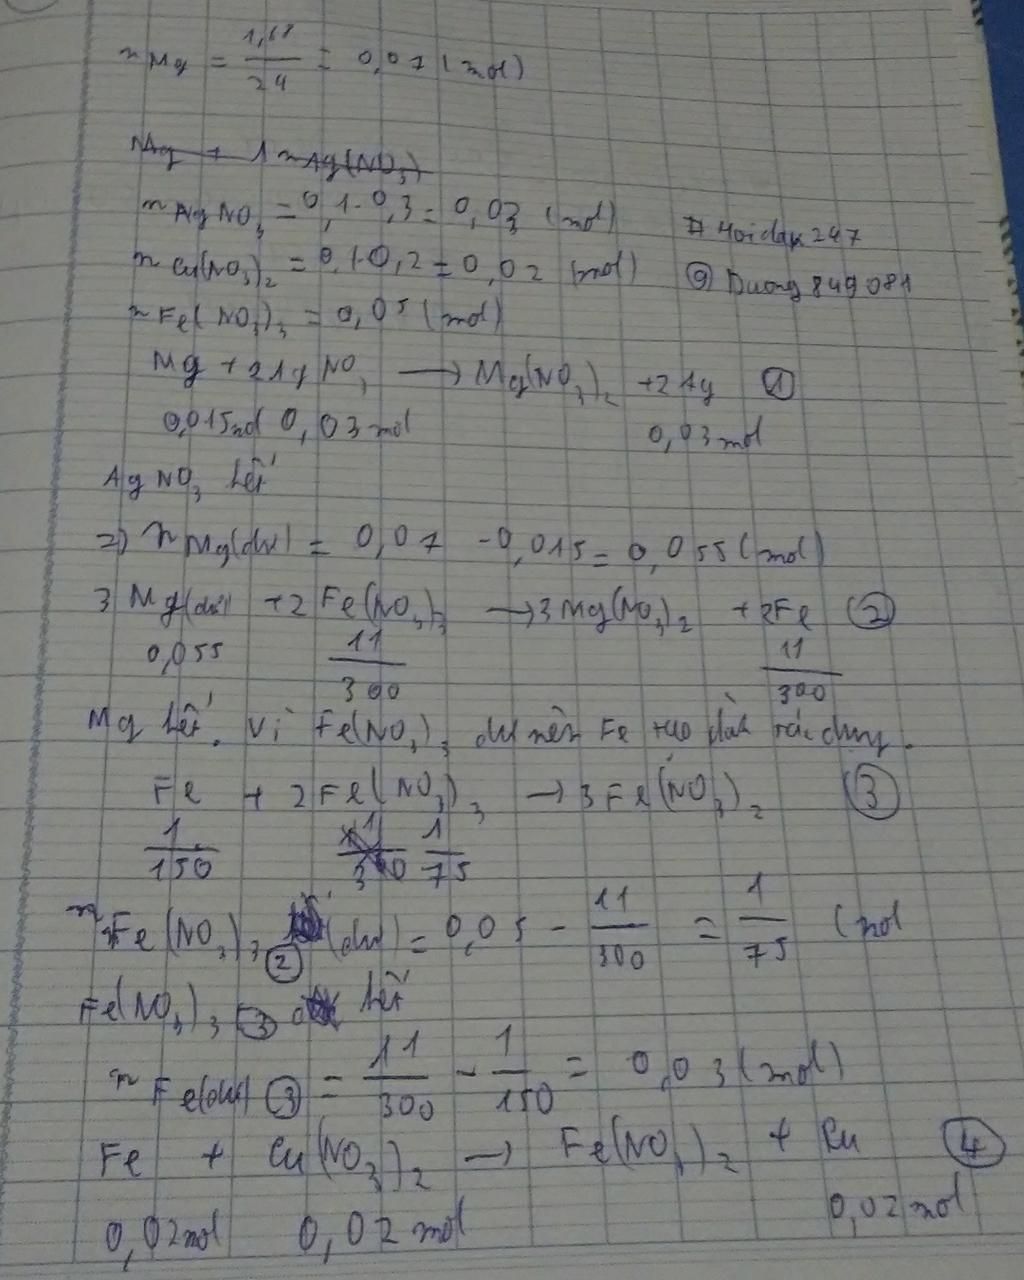 nMg = 1,68/24 = 0,07 (mol)
Mg + 1 nAg(NO3)
nAgNO3 = 0,1.0,3 = 0,03 (mol)
# Hoidap247
nCu(NO3)2 = 0,1.0,2 = 0,02 (mol)
@ Duong849081
nFe(NO3)3 = 0,05 (mol)
Mg + 2AgNO3 → Mg(NO3)2 + 2Ag ①
0,015mol 0,03mol 0,03mol
AgNO3 hết
=> nMg(dư) = 0,07 - 0,015 = 0,055 (mol)
3Mg(dư) + 2Fe(NO3)3 → 3Mg(NO3)2 + 2Fe ②
0,055 11/300 11/300
Mg hết. Vì Fe(NO3)3 dư nên Fe tạo tác dụng.
Fe + 2Fe(NO3)3 → 3Fe(NO3)2 ③
1/150 1/75
nFe(NO3)3 ② (dư) = 0,05 - 11/300 = 1/75 (mol
Fe(NO3)3 ③ hết
nFe(dư) ③ = 11/300 - 1/150 = 0,03 (mol)
Fe + Cu(NO3)2 → Fe(NO3)2 + Cu ④
0,02mol 0,02mol 0,02mol